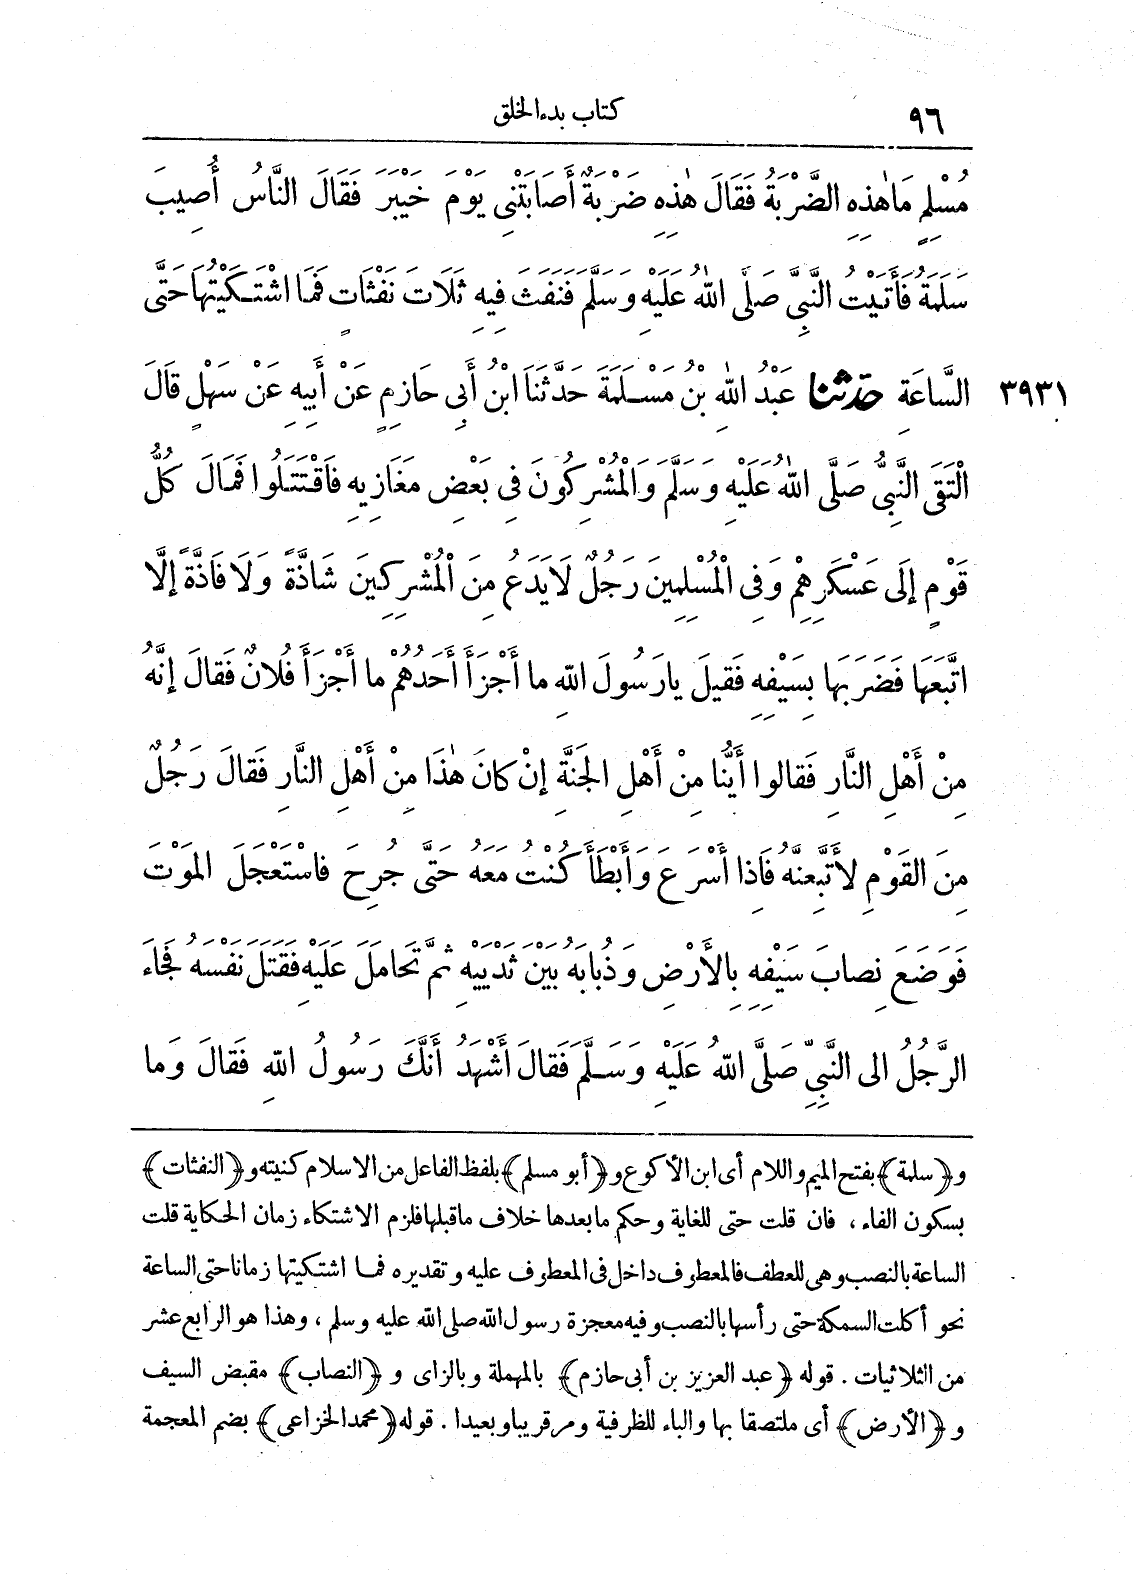 ٩٦
كتاب بدء الخلق
مُسْلِمٍ مَا هٰذِهِ الضَّرْبَةُ فَقَالَ هٰذِهِ ضَرْبَةٌ أَصَابَتْنِي يَوْمَ خَيْبَرَ فَقَالَ النَّاسُ أُصِيبَ
سَلَمَةُ فَأَتَيْتُ النَّبِيَّ صَلَّى اللهُ عَلَيْهِ وَسَلَّمَ فَنَفَثَ فِيهِ ثَلَاثَ نَفْثَاتٍ فَمَا اشْتَكَيْتُهَا حَتَّى
٣٩٣١ السَّاعَةِ حَدَّثَنَا عَبْدُ اللهِ بْنُ مَسْلَمَةَ حَدَّثَنَا ابْنُ أَبِي حَازِمٍ عَنْ أَبِيهِ عَنْ سَهْلٍ قَالَ
الْتَقَى النَّبِيُّ صَلَّى اللهُ عَلَيْهِ وَسَلَّمَ وَالْمُشْرِكُونَ فِي بَعْضِ مَغَازِيهِ فَاقْتَتَلُوا فَمَالَ كُلُّ
قَوْمٍ إِلَى عَسْكَرِهِمْ وَفِي الْمُسْلِمِينَ رَجُلٌ لَا يَدَعُ مِنَ الْمُشْرِكِينَ شَاذَّةً وَلَا فَاذَّةً إِلَّا
اتَّبَعَهَا فَضَرَبَهَا بِسَيْفِهِ فَقِيلَ يَا رَسُولَ اللهِ ما أَجْزَأَ أَحَدُهُمْ ما أَجْزَأَ فُلَانٌ فَقَالَ إِنَّهُ
مِنْ أَهْلِ النَّارِ فَقالوا أَيُّنا مِنْ أَهْلِ الجَنَّةِ إِنْ كانَ هٰذَا مِنْ أَهْلِ النَّارِ فَقالَ رَجُلٌ
مِنَ القَوْمِ لَأَتَّبِعَنَّهُ فَاِذا أَسْرَعَ وَأَبْطَأَ كُنْتُ مَعَهُ حَتَّى جُرِحَ فاسْتَعْجَلَ المَوْتَ
فَوَضَعَ نِصابَ سَيْفِهِ بِالأَرْضِ وَذُبابَهُ بَيْنَ ثَدْيَيْهِ ثمَّ تَحامَلَ عَلَيْهِ فَقَتَلَ نَفْسَهُ فَجَاءَ
الرَّجُلُ الى النَّبِيِّ صَلَّى اللهُ عَلَيْهِ وَسَلَّمَ فَقالَ أَشْهَدُ أَنَّكَ رَسُولُ اللهِ فَقالَ وَما
و ﴿سلمة﴾ بفتح الميم واللام أى ابن الأكوع و ﴿أبو مسلم﴾ بلفظ الفاعل من الاسلام كنيته و ﴿النفثات﴾
بسكون الفاء ، فان قلت حتى للغاية وحكم ما بعدها خلاف ما قبلها فلزم الاشتكاء زمان الحكاية قلت
الساعة بالنصب وهى للعطف فالمعطوف داخل فى المعطوف عليه وتقديره فما اشتكيتها زمانا حتى الساعة
نحو أكلت السمكة حتى رأسها بالنصب وفيه معجزة رسول الله صلى الله عليه وسلم ، وهذا هو الرابع عشر
من الثلاثيات . قوله ﴿عبد العزيز بن أبى حازم﴾ بالمهملة وبالزاى و ﴿النصاب﴾ مقبض السيف
و ﴿الأرض﴾ أى ملتصقا بها والباء للظرفية ومر قريبا وبعيدا . قوله ﴿محمد الخزاعى﴾ بضم المعجمة